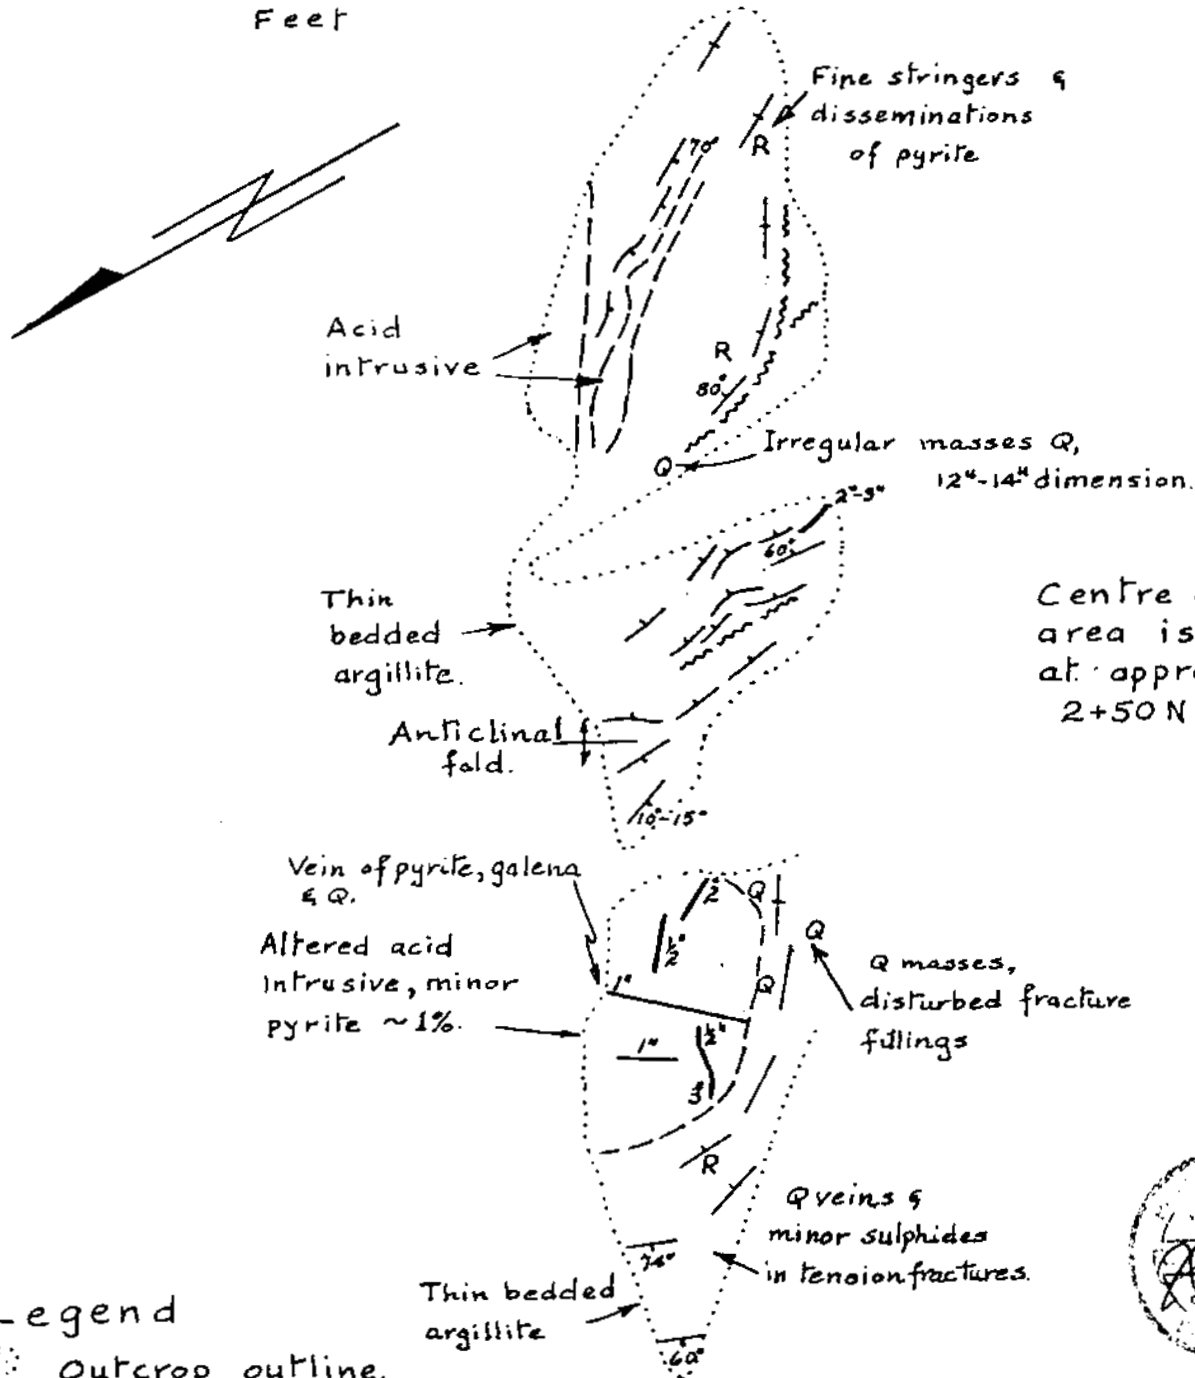 Feet
Fine stringers &
disseminations
of pyrite
R
70°
Acid
intrusive
R
80°
Q
Irregular masses Q,
12"-14" dimension.
2"-3"
60°
Thin
bedded
argillite.
Centre
area is
at appr
2+50 N
Anticlinal
fold.
10°-15°
Vein of pyrite, galena
& Q.
Altered acid
intrusive, minor
pyrite ~1%.
Q
Q
1/2"
Q
1"
1"
1/2"
Q masses,
disturbed fracture
fillings
R
Q veins &
minor sulphides
in tension fractures.
Thin bedded
argillite
60°
Legend
Outcrop outline.